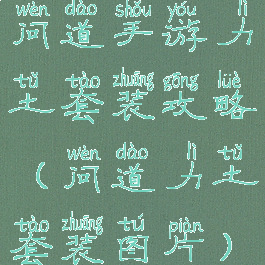 wèn dào shǒu yóu lì
问道手游力
tǔ tào zhuāng gōng lüè
土套装攻略
wèn dào lì tǔ
（问道力土
tào zhuāng tú piàn
套装图片）